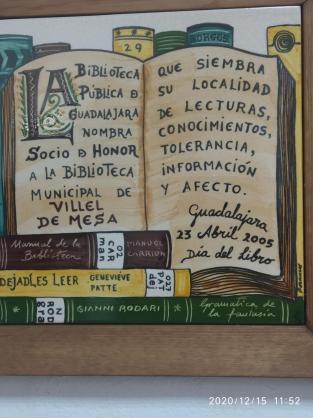 29
BORGES
LA BIBLIOTECA
PÚBLICA D
GUADALAJARA
NOMBRA
SOCIO D HONOR
A LA BIBLIOTECA
MUNICIPAL DE
VILLEL
DE MESA
QUE SIEMBRA
SU LOCALIDAD
DE LECTURAS,
CONOCIMIENTOS,
TOLERANCIA,
INFORMACIÓN
Y AFECTO.
Guadalajara
23 Abril 2005
Día del Libro
Manual de la
Biblioteca
02
CAR
man
MANUEL
CARRIÓN
DEJADLES LEER
GENEVIÈVE
PATTE
027
PAT
dej
N
ROD
gra
GIANNI RODARI
Gramática de
la fantasía
2020/12/15 11:52